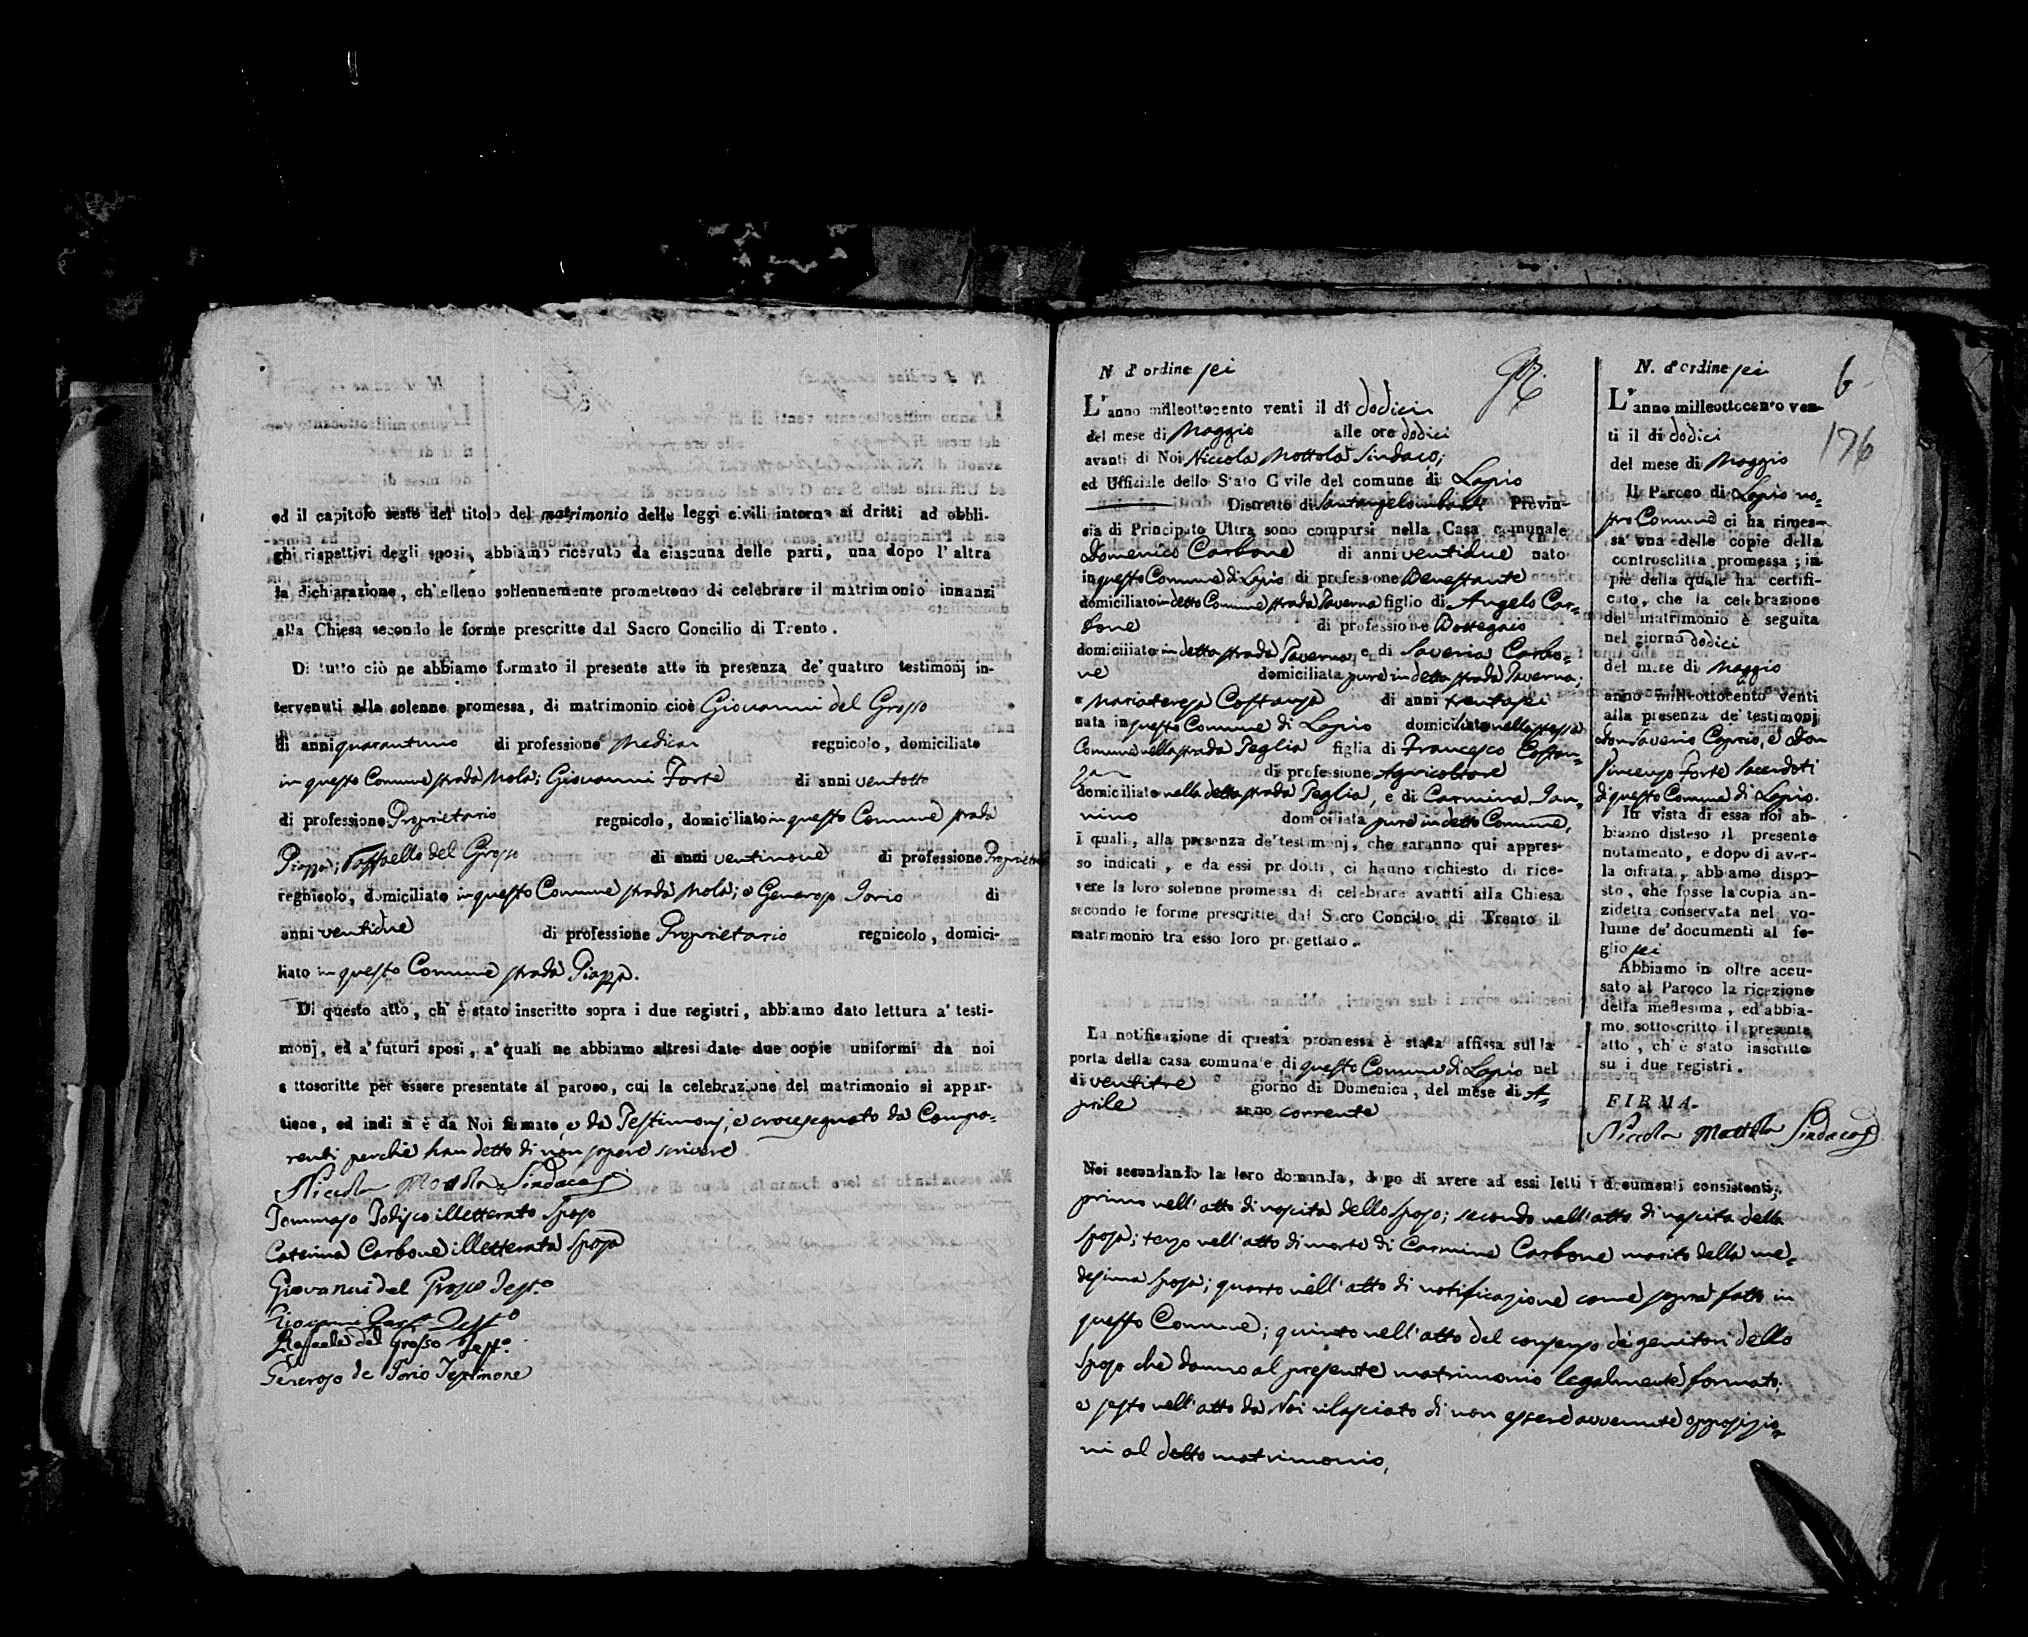 ed il capitolo sesto del titolo del matrimonio delle leggi civili intorno ai dritti ad obbli-
ghi rispettivi degli sposi, abbiamo ricevuto da ciascuna delle parti, una dopo l'altra
la dichiarazione, ch'elleno sollennemente promettono di celebrare il matrimonio innanzi
alla Chiesa secondo le forme prescritte dal Sacro Concilio di Trento.
Di tutto ciò ne abbiamo formato il presente atto in presenza de' quattro testimonj in-
tervenuti alla solenne promessa, di matrimonio cioè Giovanni del Grosso
di anni quarantuno di professione Medico regnicolo, domiciliato
in questo Comune strada Mola; Giovanni Forte di anni ventotto
di professione Proprietario regnicolo, domiciliato in questo Comune strada
Piazza; Raffaello del Grosso di anni ventinove di professione Proprietario
regnicolo, domiciliato in questo Comune strada Mola; e Generoso Iorio di
anni ventidue di professione Proprietario regnicolo, domici-
liato in questo Comune strada Piazza.
Di questo atto, ch' è stato inscritto sopra i due registri, abbiamo dato lettura a' testi-
monj, ed a' futuri sposi, a' quali ne abbiamo altresì date due copie uniformi da noi
sottoscritte per essere presentate al paroco, cui la celebrazione del matrimonio si appar-
tiene, ed indi si è da Noi firmato, e da Testimonj, e crocesegnato da Compa-
renti perchè han detto di non sapere scrivere
Niccola Mottola Sindaco
Tommaso Iodisco illetterato Sposo
Caterina Carbone illetterata Sposa
Giovanni del Grosso Test.o
Giovanni Forte Test.o
Raffaele del Grosso Test.o
Generoso de Iorio Testimone
N. d'ordine sei
L'anno milleottocento venti il dì dodici
del mese di Maggio alle ore dodici
avanti di Noi Niccola Mottola Sindaco;
ed Ufficiale dello Stato Civile del comune di Lapio
Distretto di Santangelolombardi Provin-
cia di Principato Ultra sono comparsi nella Casa comunale
Domenico Carbone di anni ventidue nato
in questo Comune di Lapio di professione Benestante
domiciliato in detto Comune strada Taverna figlio di Angelo Car-
bone di professione Bottegaio
domiciliato in detta strada Taverna e di Saveria Carbo-
ne domiciliata pure in detta strada Taverna;
e Mariateresa Costanza di anni trentasei
nata in questo Comune di Lapio domiciliata nello stesso
Comune nella strada Teglia figlia di Francesco Costan-
za di professione Agricoltore
domiciliato nella detta strada Teglia, e di Carmina Ian-
nino domiciliata pure in detto Comune,
i quali, alla presenza de' testimonj, che saranno qui appres-
so indicati, e da essi prodotti, ci hanno richiesto di rice-
vere la loro solenne promessa di celebrare avanti alla Chiesa
secondo le forme prescritte dal Sacro Concilio di Trento il
matrimonio tra esso loro progettato.
La notificazione di questa promessa è stata affissa sulla
porta della casa comunale di questo Comune di Lapio nel
dì ventitre giorno di Domenica, del mese di A-
prile anno corrente
Noi secondando la loro domanda, dopo di avere ad essi letti i documenti consistenti,
primo nell'atto di nascita dello Sposo; secondo nell'atto di nascita della
Sposa; terzo nell'atto di morte di Carmine Carbone marito della me-
desima Sposa; quarto nell'atto di notificazione come sopra fatto in
questo Comune; quinto nell'atto del consenso de' genitori dello
Sposo che danno al presente matrimonio legalmente formato;
e sesto nell'atto da Noi rilasciato di non essere avvenute opposizio-
ni al detto matrimonio,
N. d'ordine sei
6
176
L'anno milleottocento ven-
ti il dì dodici
del mese di Maggio
Il Paroco di Lapio no-
stro Comune ci ha rimes-
sa una delle copie della
controscritta promessa; in
piè della quale ha certifi-
cato, che la celebrazione
del matrimonio è seguita
nel giorno dodici
del mese di Maggio
anno milleottocento venti
alla presenza de' testimonj
Don Saverio Caprio, e Don
Vincenzo Forte Sacerdoti
di questo Comune di Lapio.
In vista di essa noi ab-
biamo disteso il presente
notamento, e dopo di aver-
la cifrata, abbiamo dispo-
sto, che fosse la copia an-
zidetta conservata nel vo-
lume de' documenti al fo-
glio sei
Abbiamo in oltre accu-
sato al Paroco la ricezione
della medesima, ed abbia-
mo sottoscritto il presente
atto, ch'è stato inscritto
su i due registri.
FIRMA.
Niccola Mottola Sindaco